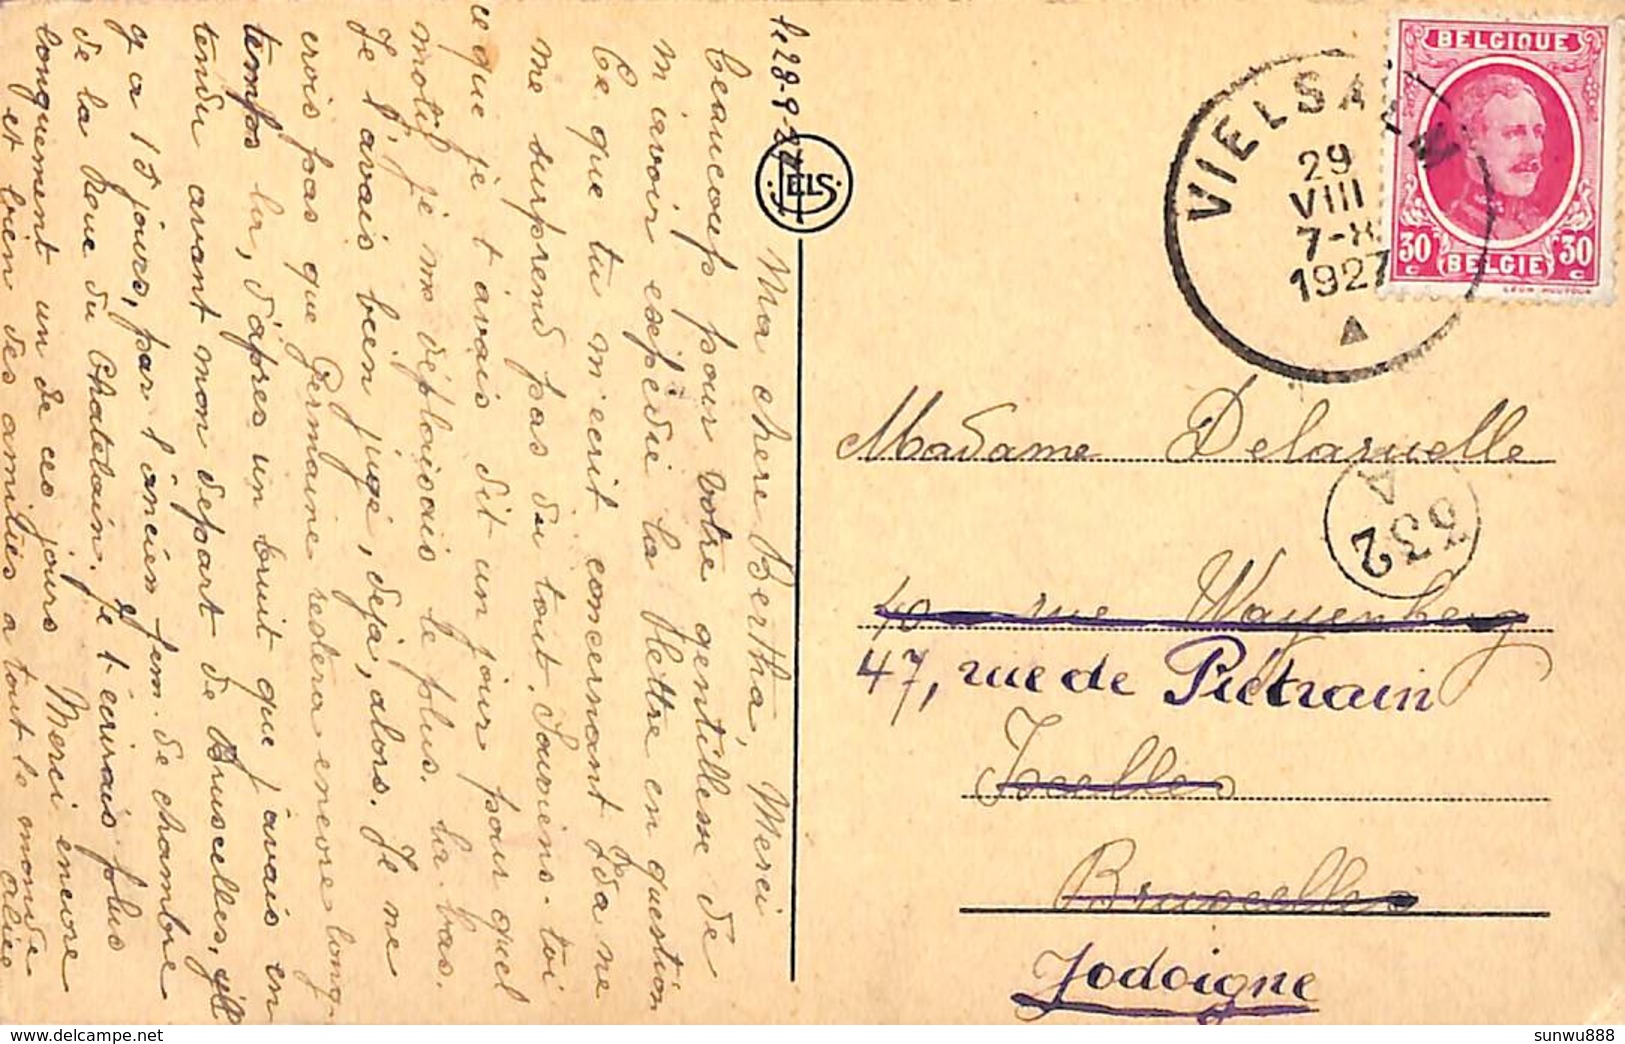 le 28-8 27
Ma chere Bertha, Merci
beaucoup pour votre gentillesse de
m'avoir expédié la flettre en question
Ce que tu m'ecrit concernant Ida ne
me surprend pas du tout. Souviens-toi
ce que je t'avais dit un jour pour quel
motif je me déplaisais le plus. la-bas.
Je l'avais bien jugé, deja, alors. Je ne
crois pas que Germaine restera encore long-
temps la, d'apres un bruit que j'avais en
tendu avant mon depart de Bruscelles, il
y a 15 jours, par l'ancien fem. de chambre
de la Rue du Chatelain. Je t'ecrirais plus
longuement un de ces jours. Merci encore
et bien des amitiés a tout le monde
Alice
JELS
BELGIQUE
30 c 30 c
BELGIE
VIELSALM
29
VIII
7-8
1927
Madame Delaruelle
332
A
40 rue Wayenberg
47, rue de Piétrain
Ixelles
Bruxelles
Jodoigne
sunwu888